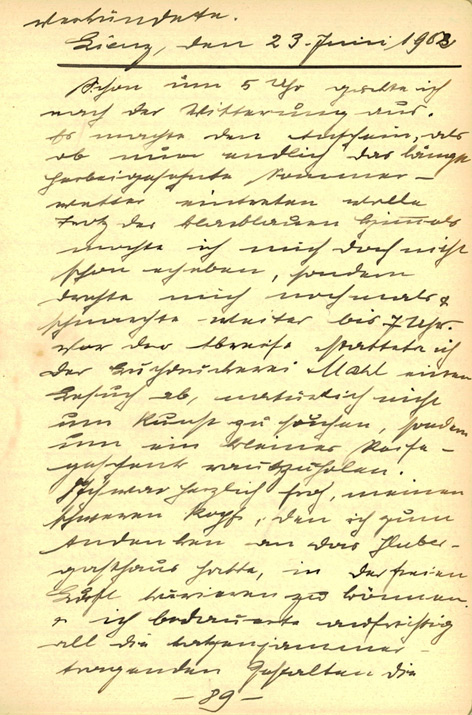 verkündete.
Lienz, den 23. Juni, 1903
Schon um 5 Uhr guckte ich
nach der Witterung aus.
Es machte den Anschein, als
ob nun endlich das lange
herbeigesehnte Sommer-
wetter eintreten wolle
Trotz des blaßblauen Himmels
mochte ich mich doch nicht
schon erheben, sondern
drehte mich nochmals &
schnarchte weiter bis 7 Uhr.
Vor der Abreise stattete ich
der Buchdruckerei Mahl einen
Besuch ab, natürlich nicht
um Kunst zu suchen, sondern
um ein kleines Reise-
geschenk
Ich war herzlich froh, meinen
schweren Kopf, den ich zum
Andenken an das
gasthaus hatte, in der freien
Luft kurieren zu können
& ich bedauerte aufrichtig
all die katzenjammer-
tragenden Gestalten die
- 89 -